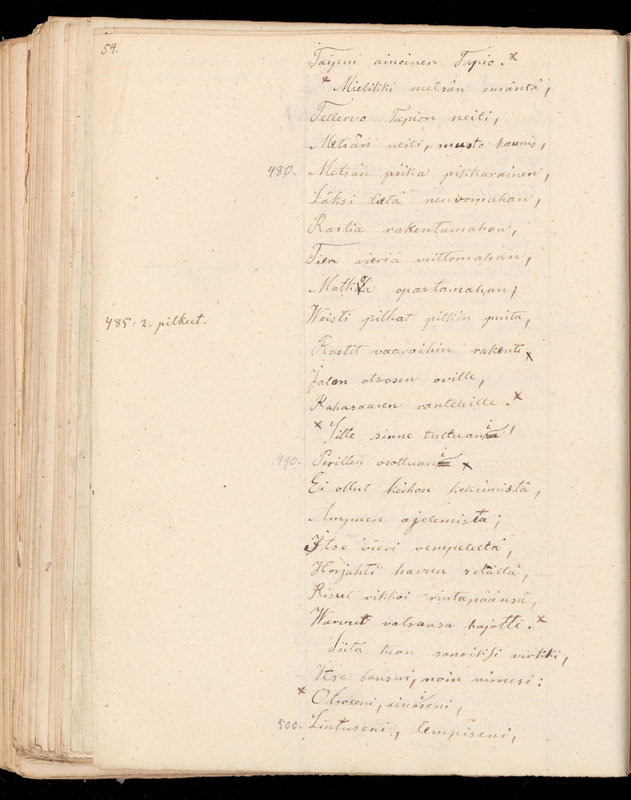 54.
Taipui ainoinen Tapio.
Mielikki metsän emäntä,
Tellervo Tapion neiti,
Metsän neiti, muoto kaunis,
480. Metsän piika pikkarainen,
Läksi tietä neuvomahan,
Rastia rakentamahan,
Tien vieriä viittomahan,
Matkoa opastamahan,
485: 2. pilkut. Weisti pilkat pitkin puita,
Rastit vaaroihin rakenti
Jalon otsosen oville,
Rahasaaren rantehille.
Sille sinne tultuani,
490. Perillen osattuani
Ei ollut keihon keksimistä,
Ampuen ajelemista;
Itse vieri vempeleltä,
Horjahti havun selältä,
Risut rikkoi rintapäänsä,
Warvut vatsansa hajotti.
Siitä tuon sanoiksi virkki,
Itse lausui, noin nimesi:
Otsoseni, ainoseni,
500. Lintuseni, lempiseni,